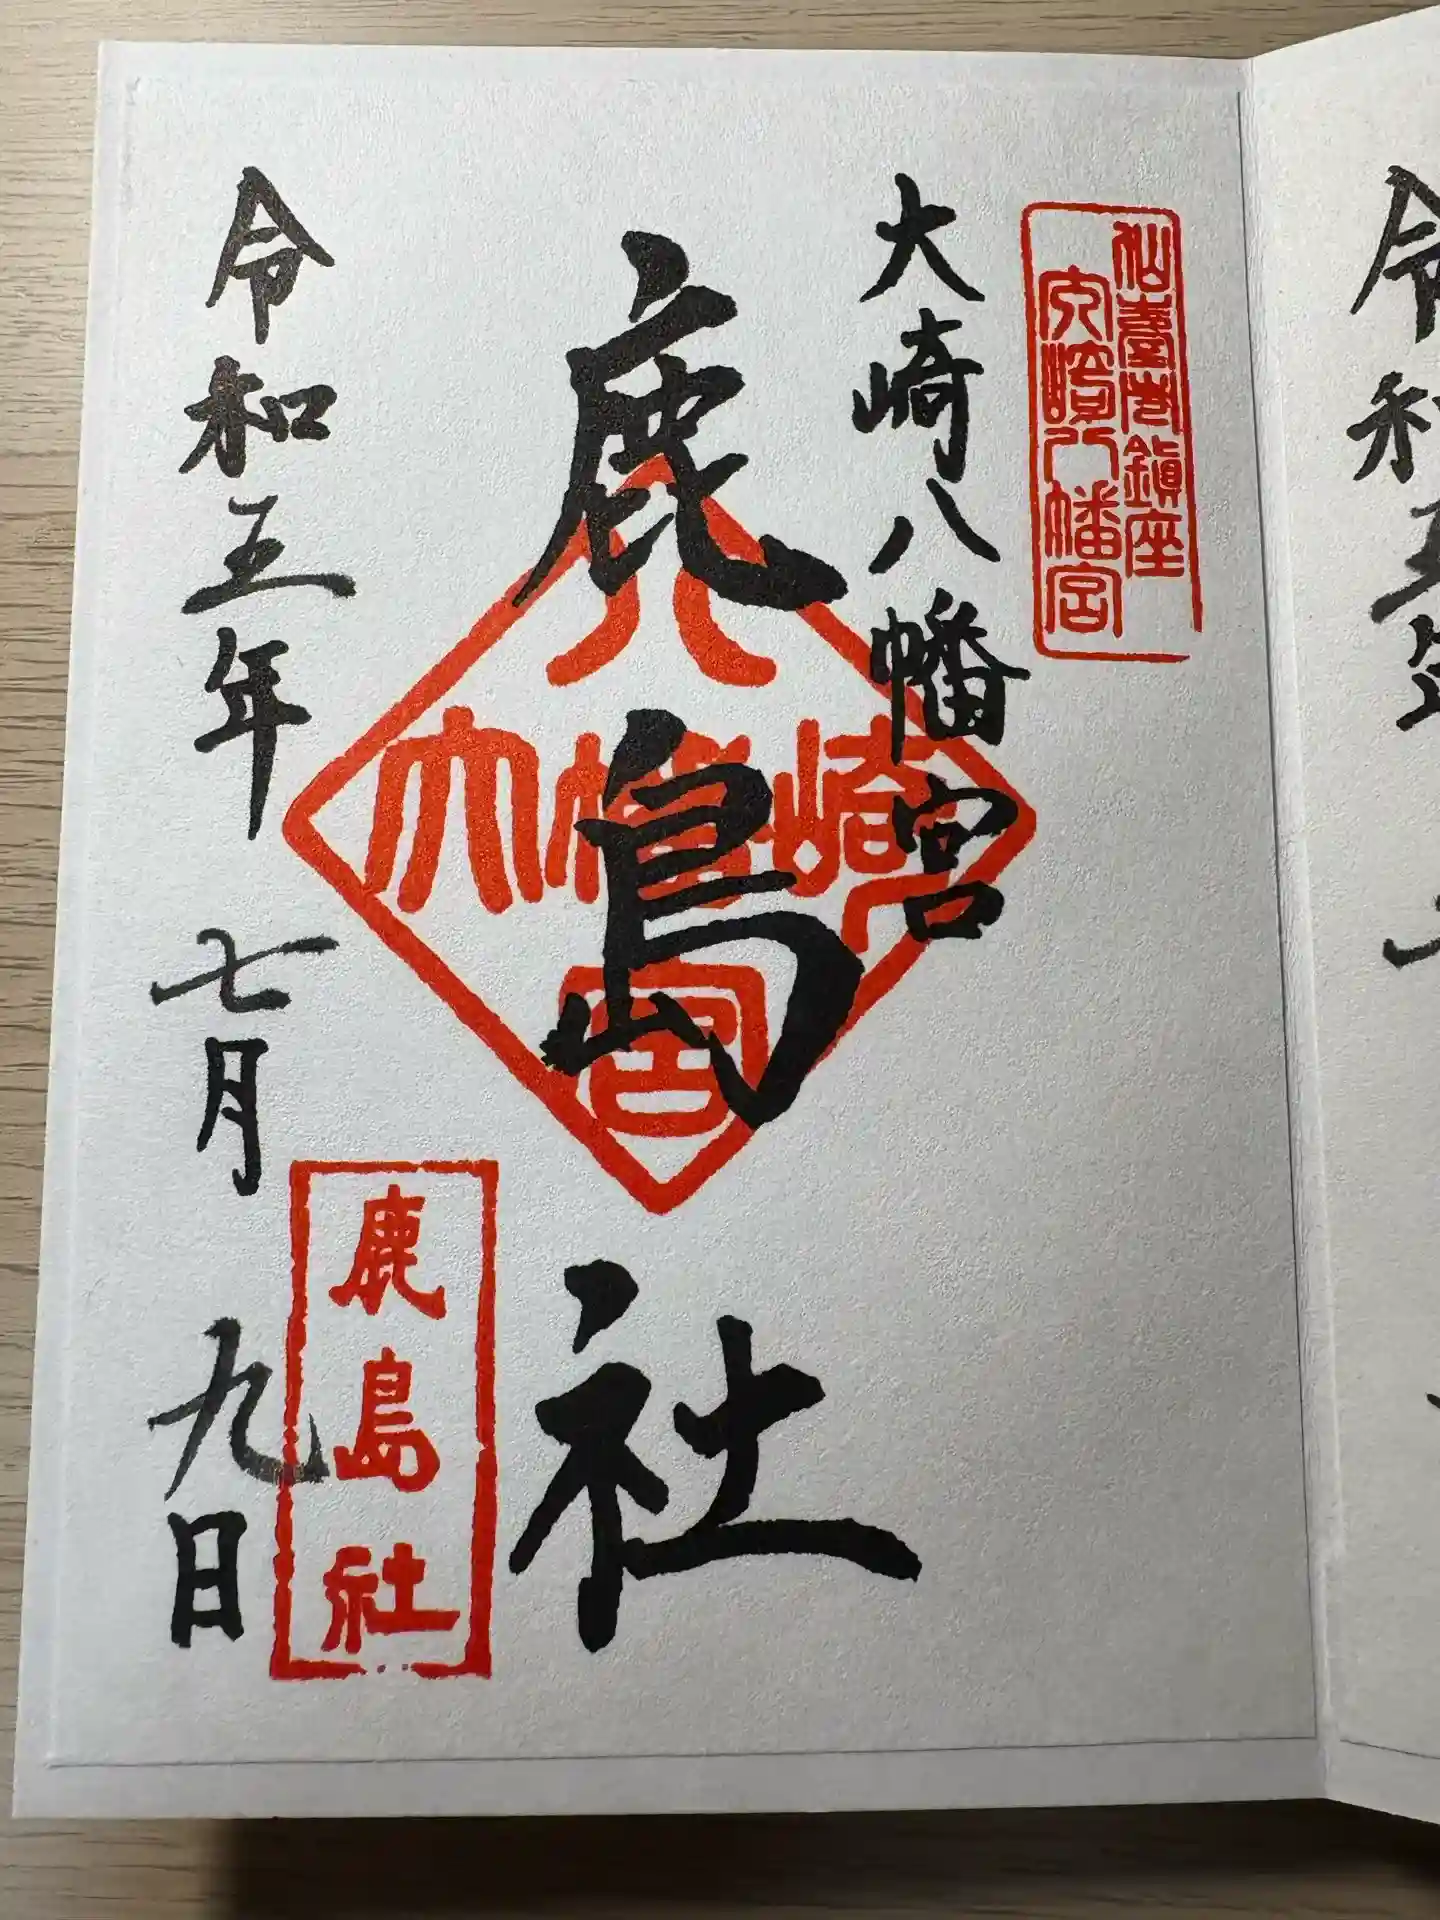 仙臺市鎮座
大崎八幡宮
大崎八幡宮
鹿島社
八
大幡崎
宮
令和五年七月九日
鹿島社
令和五年